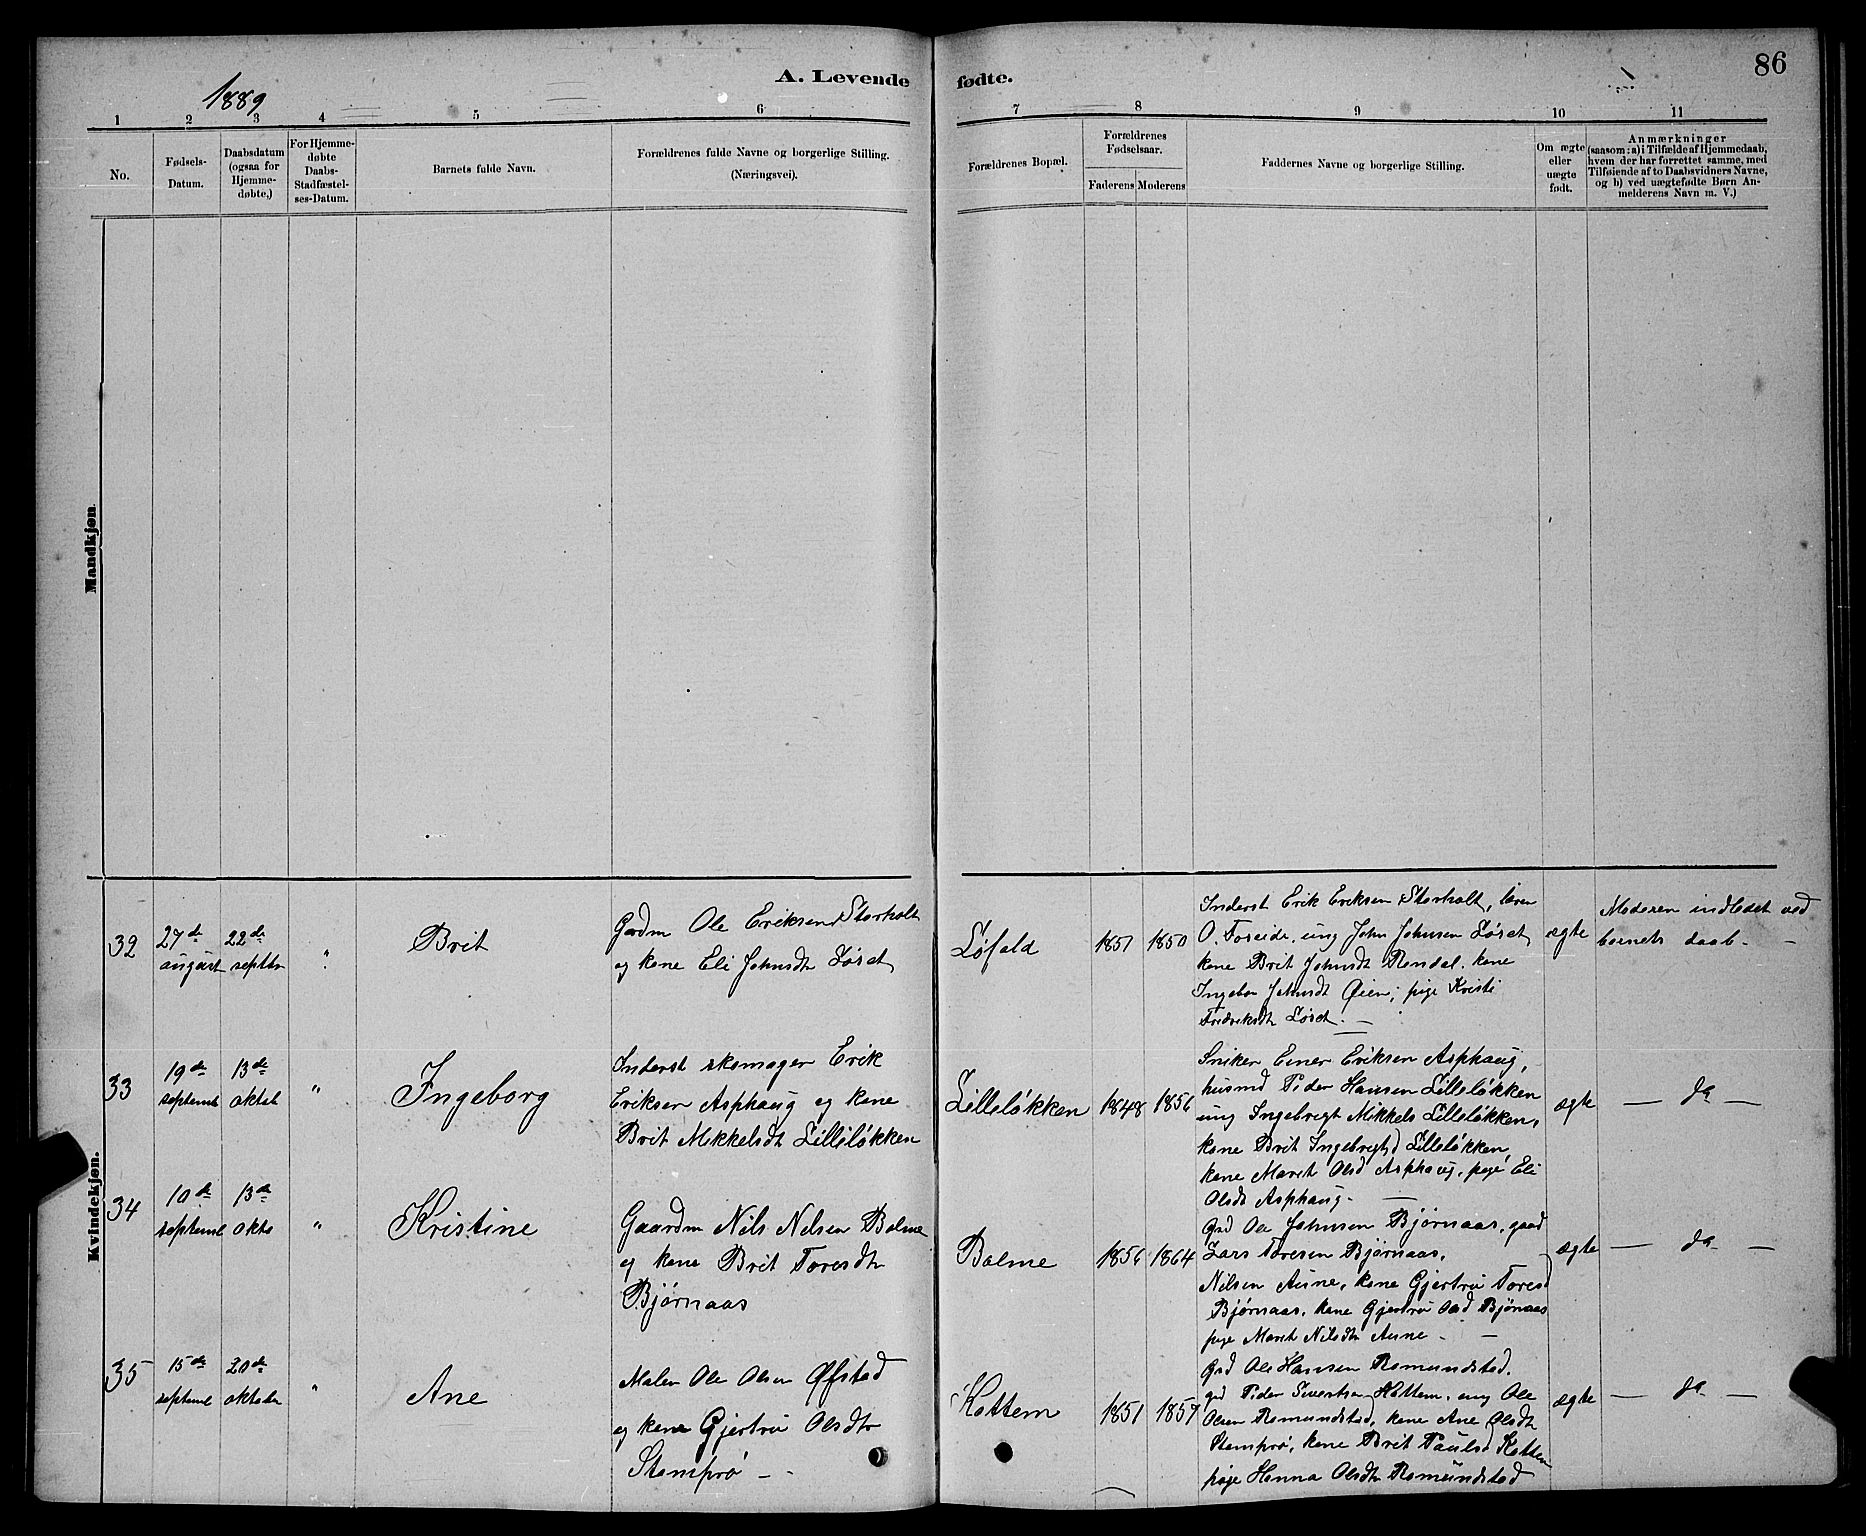 1889
A. Levende
fødte.
86
1 2 3 4 5 6 7 8 9 10 11
No.
Fødsels-
Datum.
Daabsdatum
(ogsaa for
Hjemme-
døbte.)
For Hjemme-
døbte
Daabs-
Stadfæstel-
ses-Datum.
Barnets fulde Navn.
Forældrenes fulde Navne og borgerlige Stilling.
(Næringsvei).
Forældrenes Bopæl.
Forældrenes
Fødselsaar.
Faderens Moderens
Faddernes Navne og borgerlige Stilling.
Om ægte
eller
uægte
født.
Anmærkninger
(saasom: a) i Tilfælde af Hjemmedaab,
hvem der har forrettet samme, med
Tilføiende af to Daabsvidners Navne,
og b) ved uægtefødte Børn An-
melderens Navn m. V.)
Mandkjøn.
Kvindekjøn.
32
27 de
august
22 de
septbr
"
Brit
Gardm Ole Eriksen Storholt
og kone Eli Johnsdt Løset
Løfald
1851
1850
Inderst Erik Eriksen Storholt,
O. Foseide, ung John Johnsen Løset
kone Brit Johnsdt Rendal. kone
Ingebor Johnsdt Øien; pige Kristi
Fredriksdt Løset. —
ægte
Moderen indledet ved
barnets daab. —
33
19 de
septemb
13 de
oktob
"
Ingeborg
Inderst skomager Erik
Eriksen Asphaug og kone
Brit Mikkelsdt Lilleløkken
Lilleløkken
1848
1856
Sniker Einer Eriksen Asphaug,
husmd Peder Hansen Lilleløkken
ung Ingebrigt Mikkels Lilleløkken,
kone Brit Ingebrigtd Lilleløkken,
kone Marit Olsd Asphaug, pige Eli
Olsdt Asphaug. —
ægte
— Ja —
34
10 de
septemb
13 de
okto
"
Kristine
Gaardm Nils Nilsen Bolme
og kone Brit Toresdtr
Bjørnaas
Bolme
1856
1864
Grd Ole Johnsen Bjørnaas, gaad
Lars Toresen Bjørnaas,
Nilsen Aune, kone Gjertru Toresd
Bjørnaas, kone Gjertru Olsd Bjønaas
pige Marit Nilsdtr Aune — —
ægte
— Ja —
35
15 de
septemb
20 de
oktober
"
Ane
Maler Ole Olsen Øfstad
og kone Gjertru Olsdtr
Stomprø —
Kottem
1851
1857
Grd Ole Hansen Romundstad,
grd Peder Sivertsen Hottem, ung Ole
Olsen Romundstad, kone Ane Olsdt
Stomprø, kone Brit Paulsd Kottem
pige Hanna Olsdtr Romundstad
ægte
— Ja —